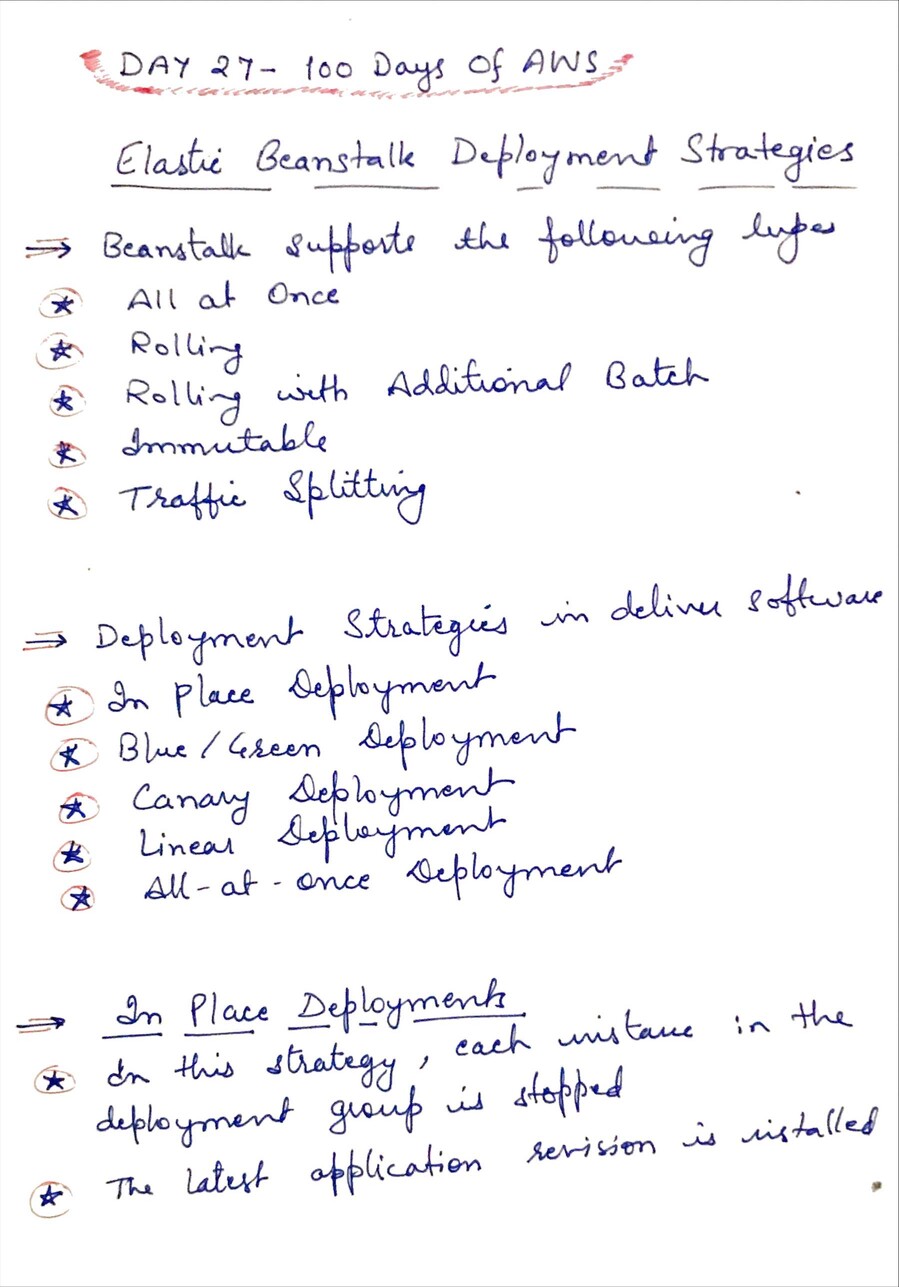 DAY 27- 100 Days Of AWS
Elastic Beanstalk Deployment Strategies
⇒ Beanstalk supports the following types
★ All at Once
★ Rolling
★ Rolling with Additional Batch
★ Immutable
★ Traffic Splitting
⇒ Deployment Strategies in deliver software
★ In Place Deployment
★ Blue/Green Deployment
★ Canary Deployment
★ Linear Deployment
★ All-at-once Deployment
⇒ In Place Deployments
★ In this strategy, each instance in the
deployment group is stopped
★ The latest application revision is installed